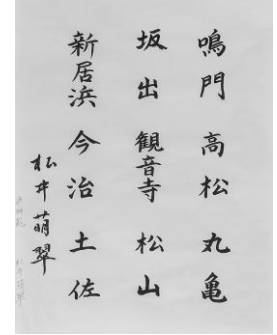 鳴門 高松 丸亀
坂出 観音寺 松山
新居浜 今治 土佐
松井萌翠